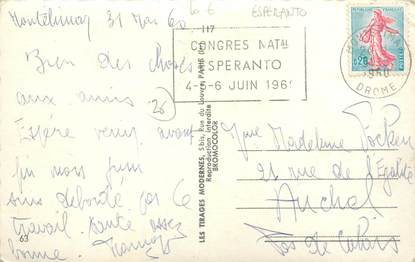 Montélimar 31 Mai 60
Bien des choses
aux amis
Espère venir avant
fin mois juin
suis débordé par le
travail. Santé assez
bonne.
63
(26)
10 €
ESPERANTO
117
CONGRES NAT.al
ESPERANTO
4-5-6 JUIN 196
LES TIRAGES MODERNES, 5 bis, Rue du Louvre, PARIS (1er)
Reproduction interdite
BROMOCOLOR
REPUBLIQUE FRANÇAISE
0,20
1960
DROME
Mme Madeleine
21 rue de l'Égalité
Auchel
Pas de Calais